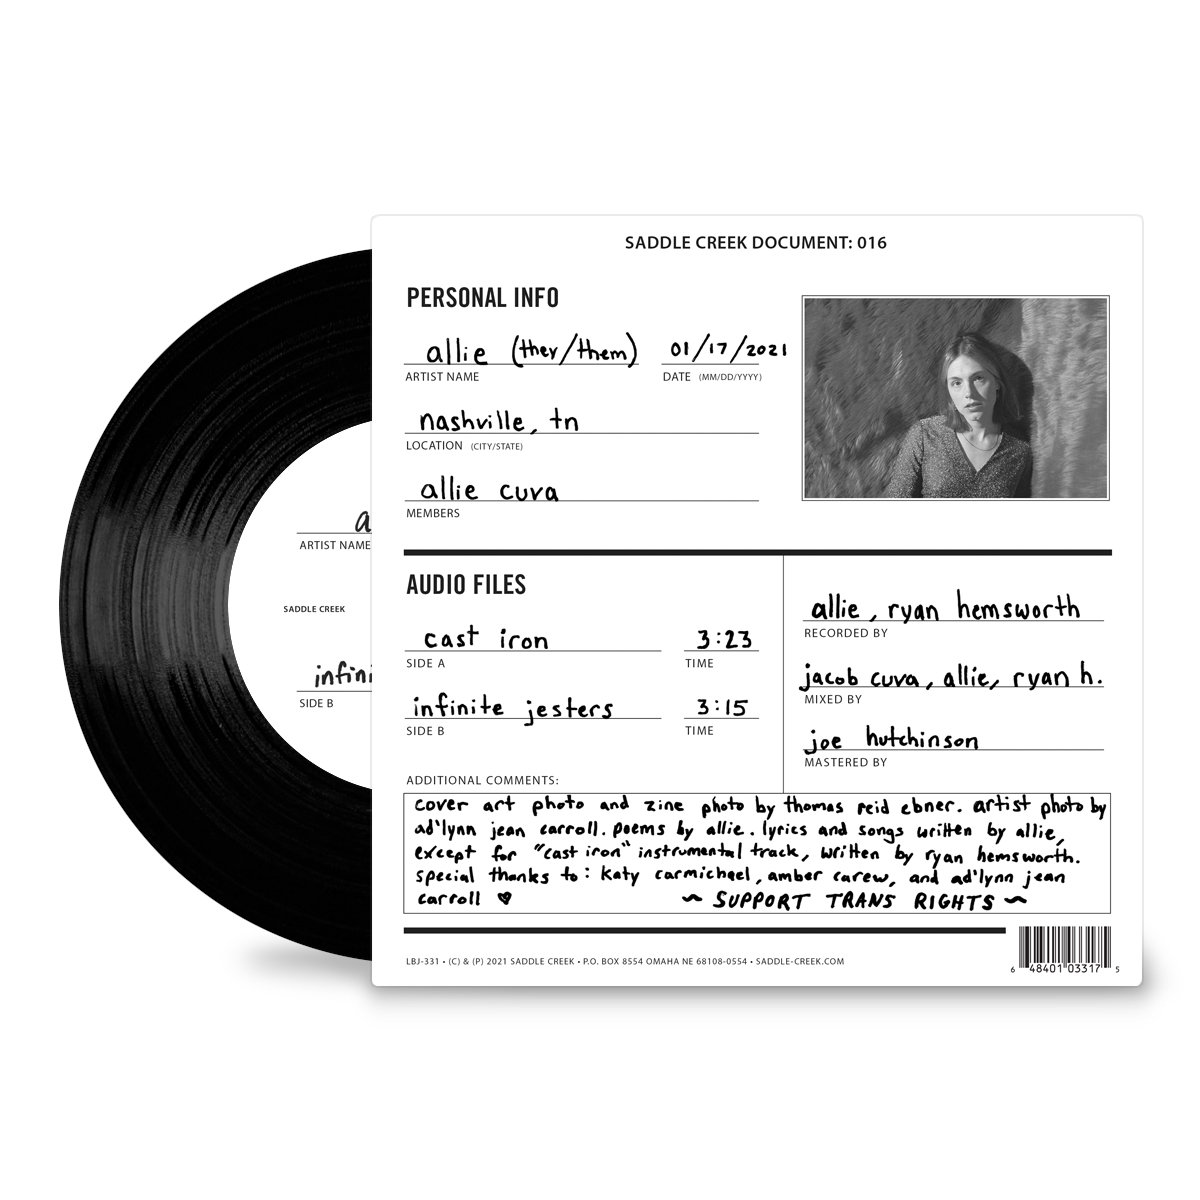 SADDLE CREEK DOCUMENT: 016
PERSONAL INFO
allie (they/them) 01/17/2021
ARTIST NAME DATE (MM/DD/YYYY)
nashville, tn
LOCATION (CITY/STATE)
allie cuva
MEMBERS
a
ARTIST NAME
SADDLE CREEK
infini
SIDE B
AUDIO FILES
cast iron 3:23
SIDE A TIME
infinite jesters 3:15
SIDE B TIME
allie, ryan hemsworth
RECORDED BY
jacob cuva, allie, ryan h.
MIXED BY
joe hutchinson
MASTERED BY
ADDITIONAL COMMENTS:
cover art photo and zine photo by thomas reid ebner. artist photo by
ad'lynn jean carroll. poems by allie. lyrics and songs written by allie,
except for "cast iron" instrumental track, written by ryan hemsworth.
special thanks to: katy carmichael, amber carew, and ad'lynn jean
carroll ♡ ~ SUPPORT TRANS RIGHTS ~
LBJ-331 • (C) & (P) 2021 SADDLE CREEK • P.O. BOX 8554 OMAHA NE 68108-0554 • SADDLE-CREEK.COM
6 48401 03317 5